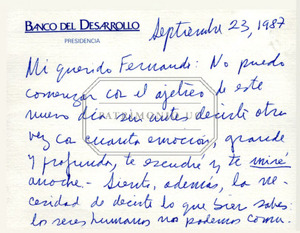 BANCO DEL DESARROLLO
PRESIDENCIA
Septiembre 23, 1987
Mi querido Fernando: No puedo
comenzar con el ajetreo de este
nuevo día sin antes decirte otra
vez con cuanta emoción, grande
y profunda, te escuché y te miré
anoche.- Siento, además, la ne-
cesidad de decirte lo que bien sabes:
los seres humanos no podemos comu-